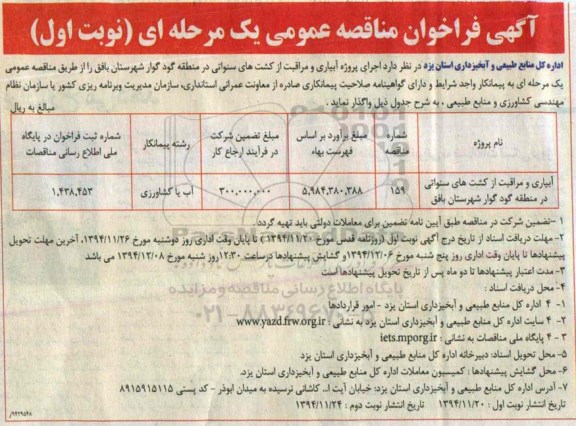 آگهی فراخوان مناقصه عمومی یک مرحله ای (نوبت اول)
اداره کل منابع طبیعی و آبخیزداری استان یزد در نظر دارد اجرای پروژه آبیاری و مراقبت از کشت های سنواتی در منطقه گود گوار شهرستان بافق را از طریق مناقصه عمومی
یک مرحله ای به پیمانکار واجد شرایط و دارای گواهینامه صلاحیت پیمانکاری صادره از معاونت عمرانی استانداری، سازمان مدیریت وبرنامه ریزی کشور یا سازمان نظام
مهندسی کشاورزی و منابع طبیعی ، به شرح جدول ذیل واگذار نماید .
مبالغ به ریال
نام پروژه | شماره مناقصه | مبلغ برآورد بر اساس فهرست بهاء | مبلغ تضمین شرکت در فرآیند ارجاع کار | رشته پیمانکار | شماره ثبت فراخوان در پایگاه ملی اطلاع رسانی مناقصات
آبیاری و مراقبت از کشت های سنواتی در منطقه گود گوار شهرستان بافق | ۱۵۹ | ۵,۹۸۴,۳۸۰,۳۸۸ | ۳۰۰,۰۰۰,۰۰۰ | آب یا کشاورزی | ۱,۴۳۸,۴۵۳
۱-تضمین شرکت در مناقصه طبق آیین نامه تضمین برای معاملات دولتی باید تهیه گردد .
۲-مهلت دریافت اسناد از تاریخ درج آگهی نوبت اول (روزنامه قدس مورخ ۱۳۹۴/۱۱/۲۰ ) تا پایان وقت اداری روز دوشنبه مورخ ۱۳۹۴/۱۱/۲۶، آخرین مهلت تحویل
پیشنهادها تا پایان وقت اداری روز پنج شنبه مورخ ۱۳۹۴/۱۲/۰۶ و گشایش پیشنهادها درساعت ۱۲:۳۰ روز شنبه مورخ ۱۳۹۴/۱۲/۰۸ می باشد
۳-مدت اعتبار پیشنهادها تا دو ماه پس از تاریخ تحویل پیشنهادها است
۴-محل دریافت اسناد :
۱-۴ اداره کل منابع طبیعی و آبخیزداری استان یزد - امور قراردادها
۲-۴ سایت اداره کل منابع طبیعی و آبخیزداری استان یزد به نشانی : www.yazd.frw.org.ir
۳-۴ پایگاه ملی مناقصات به نشانی : iets.mporg.ir
۵-محل تحویل اسناد: دبیرخانه اداره کل منابع طبیعی و آبخیزداری استان یزد
۶-محل گشایش پیشنهادها : کمیسیون معاملات اداره کل منابع طبیعی و آبخیزداری استان یزد.
۷-آدرس اداره کل منابع طبیعی و آبخیزداری استان یزد: خیابان آیت ا... کاشانی نرسیده به میدان ابوذر - کد پستی ۸۹۱۵۹۱۵۱۱۵
تاریخ انتشار نوبت اول : ۱۳۹۴/۱۱/۲۰ تاریخ انتشار نوبت دوم : ۱۳۹۴/۱۱/۲۴
پایگاه اطلاع رسانی مناقصه و مزایده
۰۲۱-۸۸۳۴۹۶۷۰